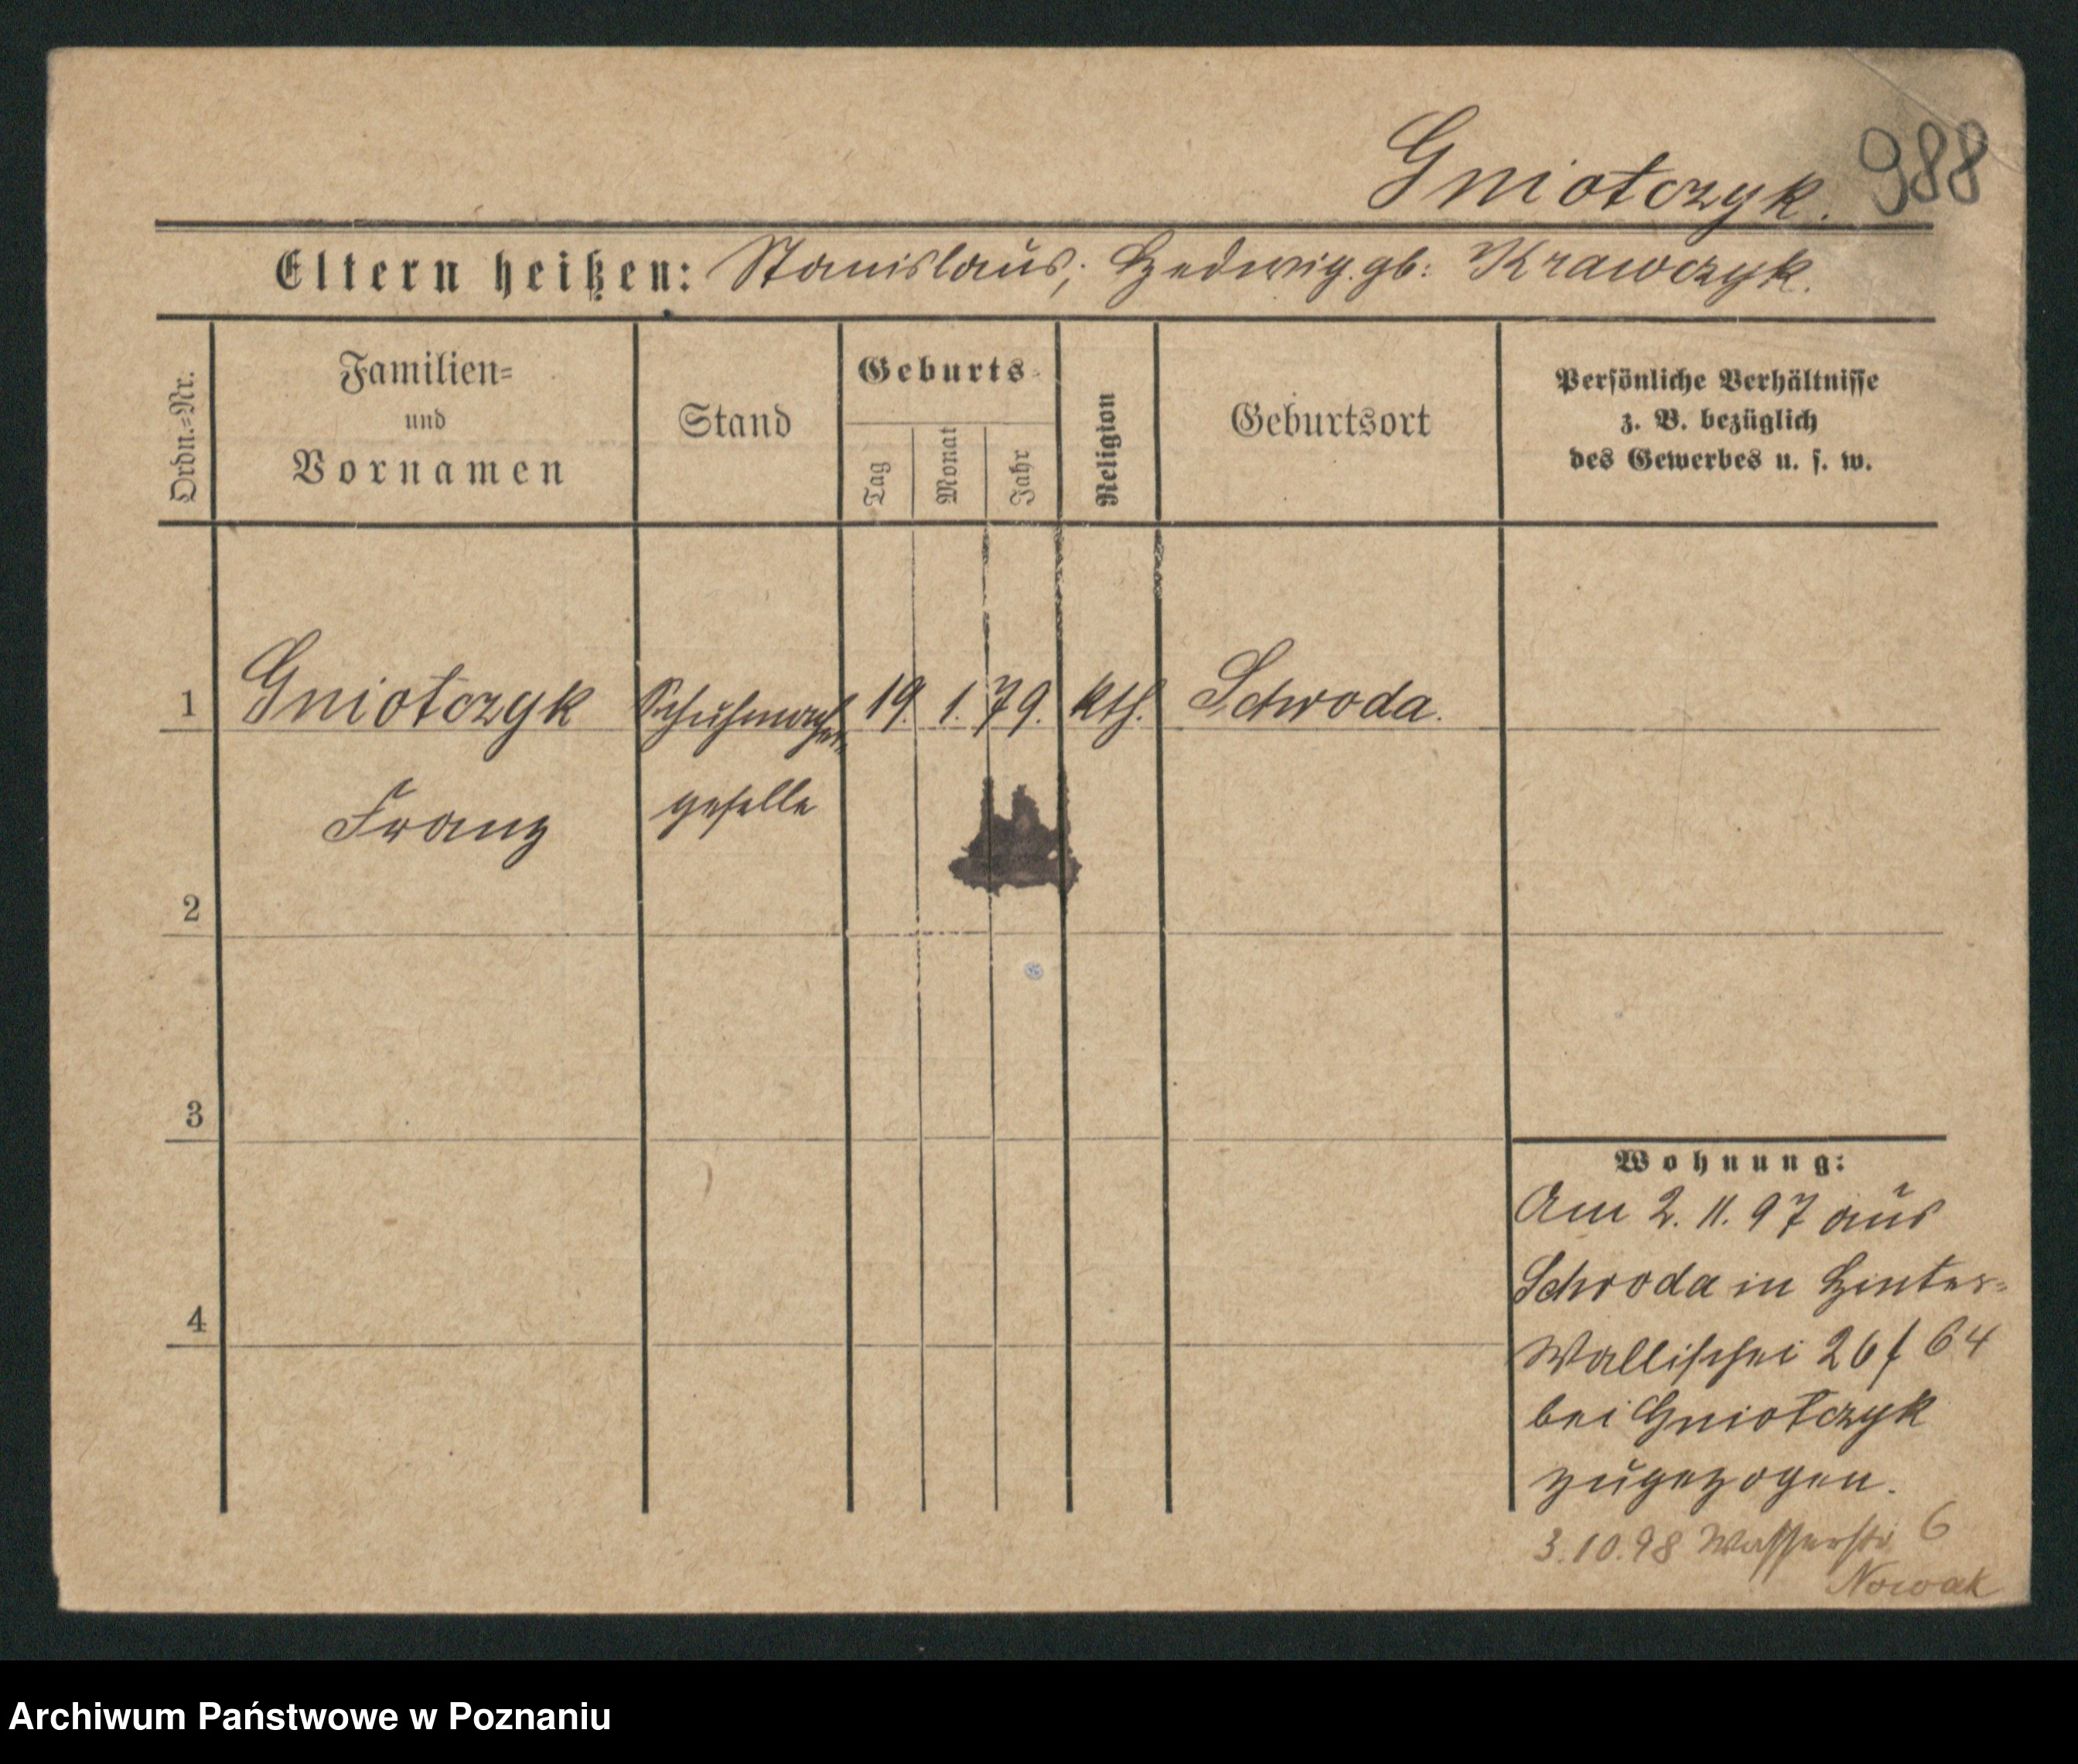 Gniotczyk. 988
Eltern heißen: Stanislaus; Hedwig gb: Krawczyk.
Ordn.=Nr.
Familien=
und
Vornamen
Stand
Geburts=
Tag
Monat
Jahr
Religion
Geburtsort
Persönliche Verhältnisse
z. B. bezüglich
des Gewerbes u. s. w.
1 Gniotczyk Schuhmacher 19. 1. 79. kth. Schroda.
Franz geselle
2
3
4
Wohnung:
Am 2. 11. 97 aus
Schroda in Hinter=
Wallischei 26 f 64
bei Gniotczyk
zugezogen.
3.10.98 Wasserstr. 6
Nowak
Archiwum Państwowe w Poznaniu